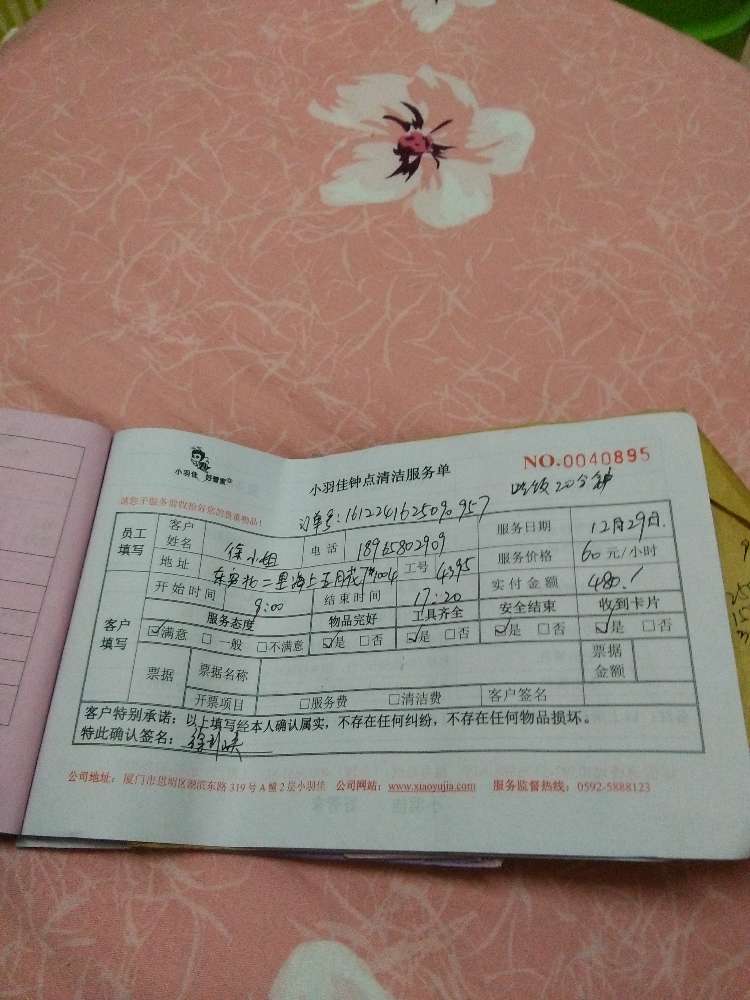 小羽佳 好管家
小羽佳钟点清洁服务单
NO.0040895
请您于服务前收拾好您的贵重物品!
订单号:1612241625090957
吃饭20分钟
员工填写 客户姓名 徐小姐 电话 18965802909 服务日期 12月29日.
地址 东宅北二里海上五月花7#1004 工号 4295 服务价格 60元/小时
开始时间 9:00 结束时间 17:20 实付金额 480.
客户填写 服务态度 物品完好 工具齐全 安全结束 收到卡片
☑满意 □一般 □不满意 ☑是 □否 ☑是 □否 ☑是 □否 ☑是 □否
票据 票据名称 票据金额
开票项目 □服务费 □清洁费 客户签名
客户特别承诺:以上填写经本人确认属实,不存在任何纠纷,不存在任何物品损坏。
特此确认签名:
公司地址:厦门市思明区湖滨东路319号A幢2层小羽佳 公司网站:www.xiaoyujia.com 服务监督热线:0592-5888123